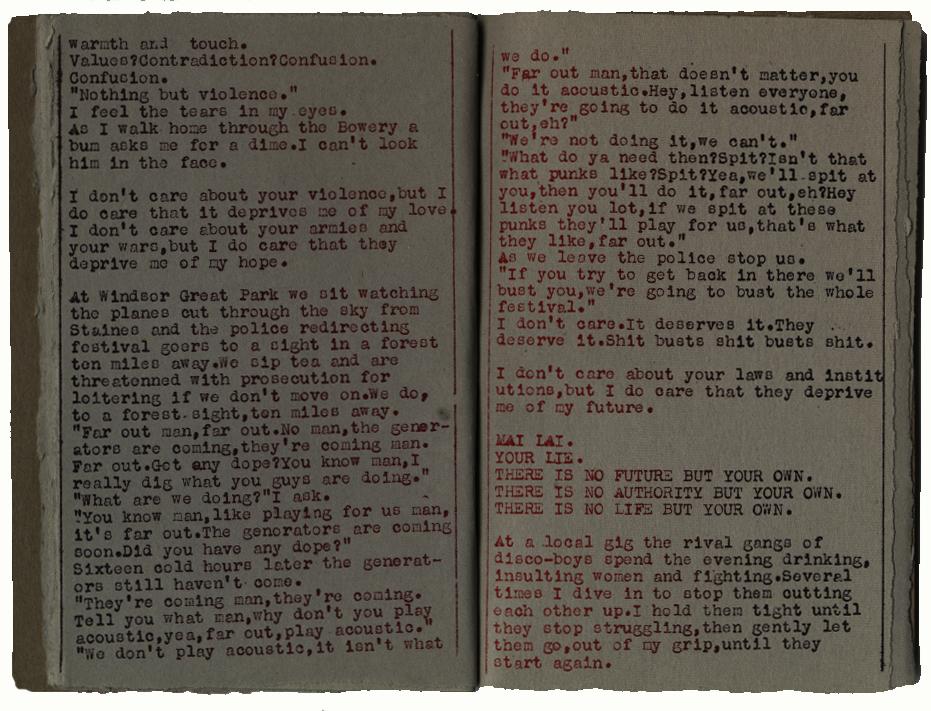 warmth and touch.
Values?Contradiction?Confusion.
Confusion.
"Nothing but violence."
I feel the tears in my eyes.
As I walk home through the Bowery a
bum asks me for a dime.I can't look
him in the face.
I don't care about your violence,but I
do care that it deprives me of my love.
I don't care about your armies and
your wars,but I do care that they
deprive me of my hope.
At Windsor Great Park we sit watching
the planes cut through the sky from
Staines and the police redirecting
festival goers to a sight in a forest
ten miles away.We sip tea and are
threatenned with prosecution for
loitering if we don't move on.We do,
to a forest sight,ten miles away.
"Far out man,far out.No man,the gener-
ators are coming,they're coming man.
Far out.Got any dope?You know man,I
really dig what you guys are doing."
"What are we doing?"I ask.
"You know man,like playing for us man,
it's far out.The genorators are coming
soon.Did you have any dope?"
Sixteen cold hours later the generat-
ors still haven't come.
"They're coming man,they're coming.
Tell you what man,why don't you play
acoustic,yea,far out,play acoustic."
"We don't play acoustic,it isn't what
we do."
"Far out man,that doesn't matter,you
do it acoustic.Hey,listen everyone,
they're going to do it acoustic,far
out,eh?"
"We're not doing it,we can't."
"What do ya need then?Spit?Isn't that
what punks like?Spit?Yea,we'll spit at
you,then you'll do it,far out,eh?Hey
listen you lot,if we spit at these
punks they'll play for us,that's what
they like,far out."
As we leave the police stop us.
"If you try to get back in there we'll
bust you,we're going to bust the whole
festival."
I don't care.It deserves it.They
deserve it.Shit busts shit busts shit.
I don't care about your laws and instit
utions,but I do care that they deprive
me of my future.
MAI LAI.
YOUR LIE.
THERE IS NO FUTURE BUT YOUR OWN.
THERE IS NO AUTHORITY BUT YOUR OWN.
THERE IS NO LIFE BUT YOUR OWN.
At a local gig the rival gangs of
disco-boys spend the evening drinking,
insulting women and fighting.Several
times I dive in to stop them cutting
each other up.I hold them tight until
they stop struggling,then gently let
them go,out of my grip,until they
start again.